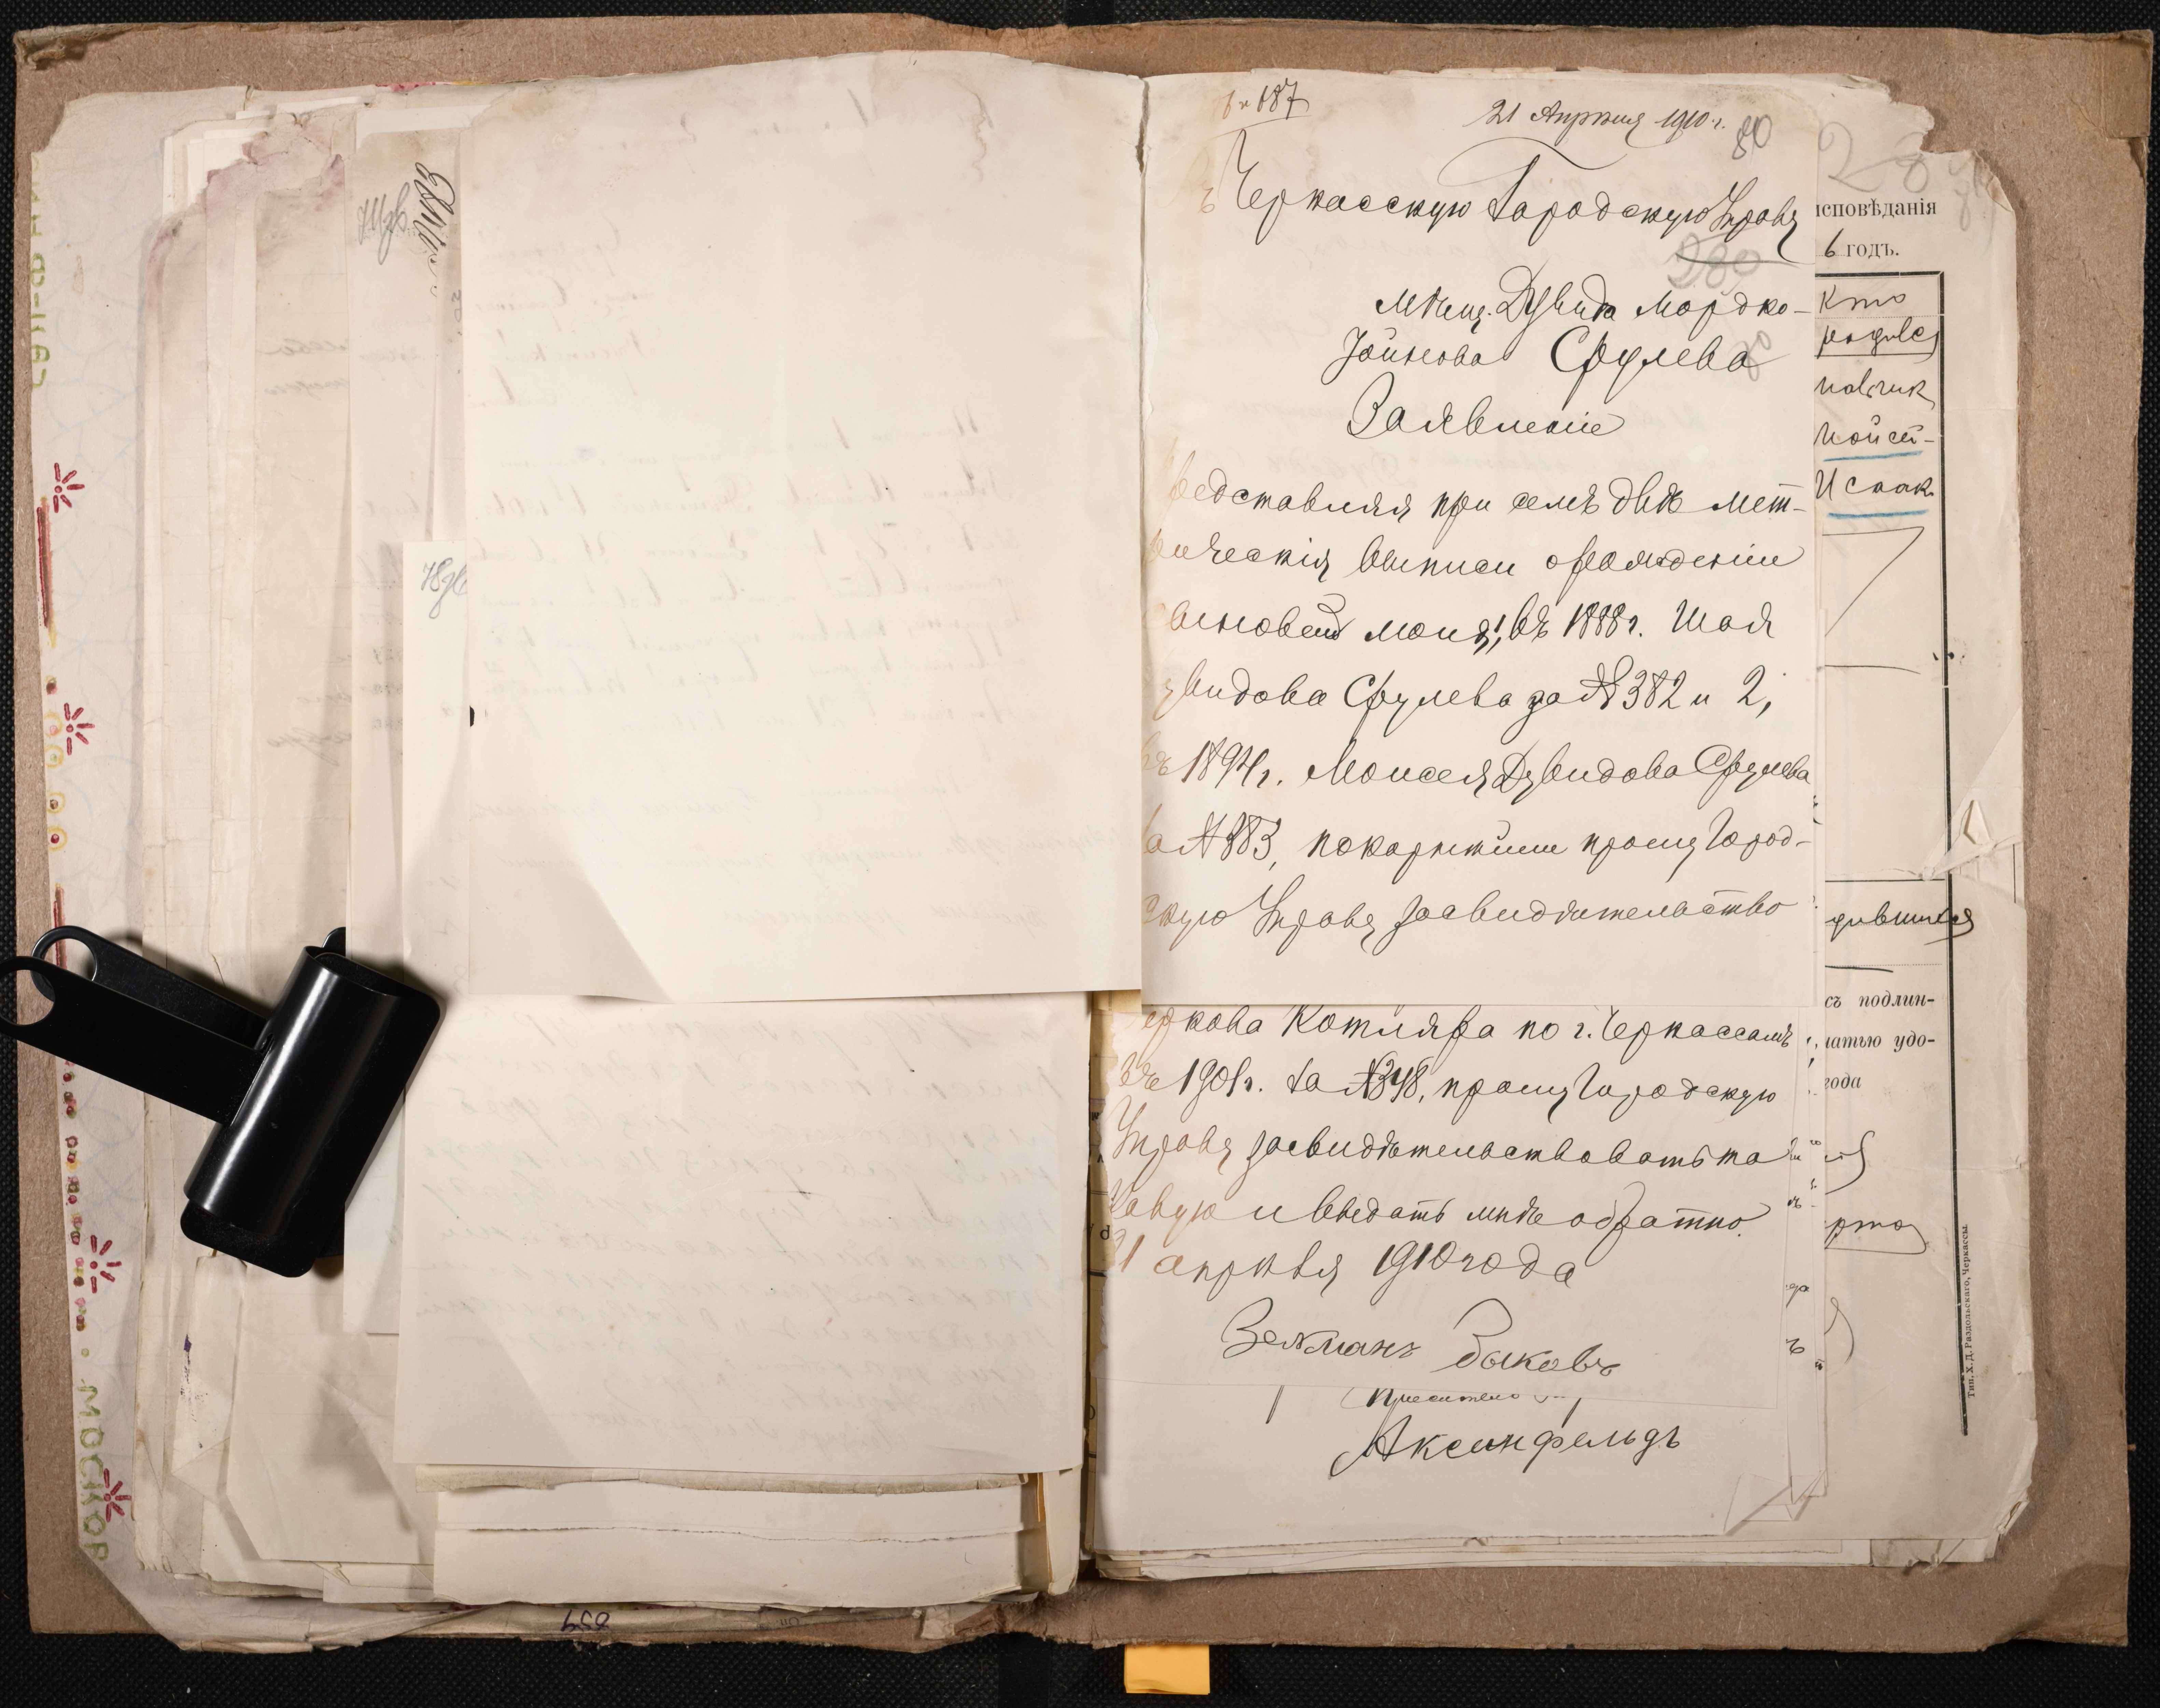 187
21 Апрѣля 1910 г.
80
Черкасскую Городскую Управу
280
Мѣщ. Дувида Мордко-
Іойнова Срулева
Заявленіе
редставляя при семъ двѣ мет-
рическія выписи о рожденіи
сыновей моихъ, въ 1888 г. Шая
увидова Срулева за № 382 и 2,
въ 1894 г. Моисея Дувидова Срулева
за № 383, покорнѣйше прошу Город-
скую Управу засвидѣтельство
еркова Котляра по г. Черкассамъ
въ 1901 г. за № 348, прошу Городскую
Управу засвидѣтельствовать та
ковую и выдать мнѣ обратно.
21 апрѣля 1910 года
Зелманъ Быковъ
Аксинфельдъ
28
исповѣданія
6 годъ.
Кто
родился
Мойсей-
Исаак
дившихся
съ подлин-
чатью удо-
года
Тип. Х. Д. Раздольскаго, Черкассы
МОСКОВ
659